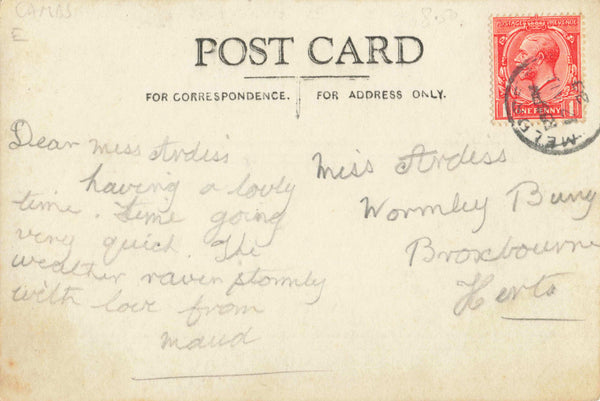 CAMBS
E
8.50.
POST CARD
FOR CORRESPONDENCE.
FOR ADDRESS ONLY.
POSTAGE REVENUE
1 ONE PENNY 1
MELB
Dear miss Ardiss
having a lovly
time. time going
very quick. The
weather raver stormly
with love from
maud
Miss Ardiss
Wormley Bury
Broxbourne
Herts